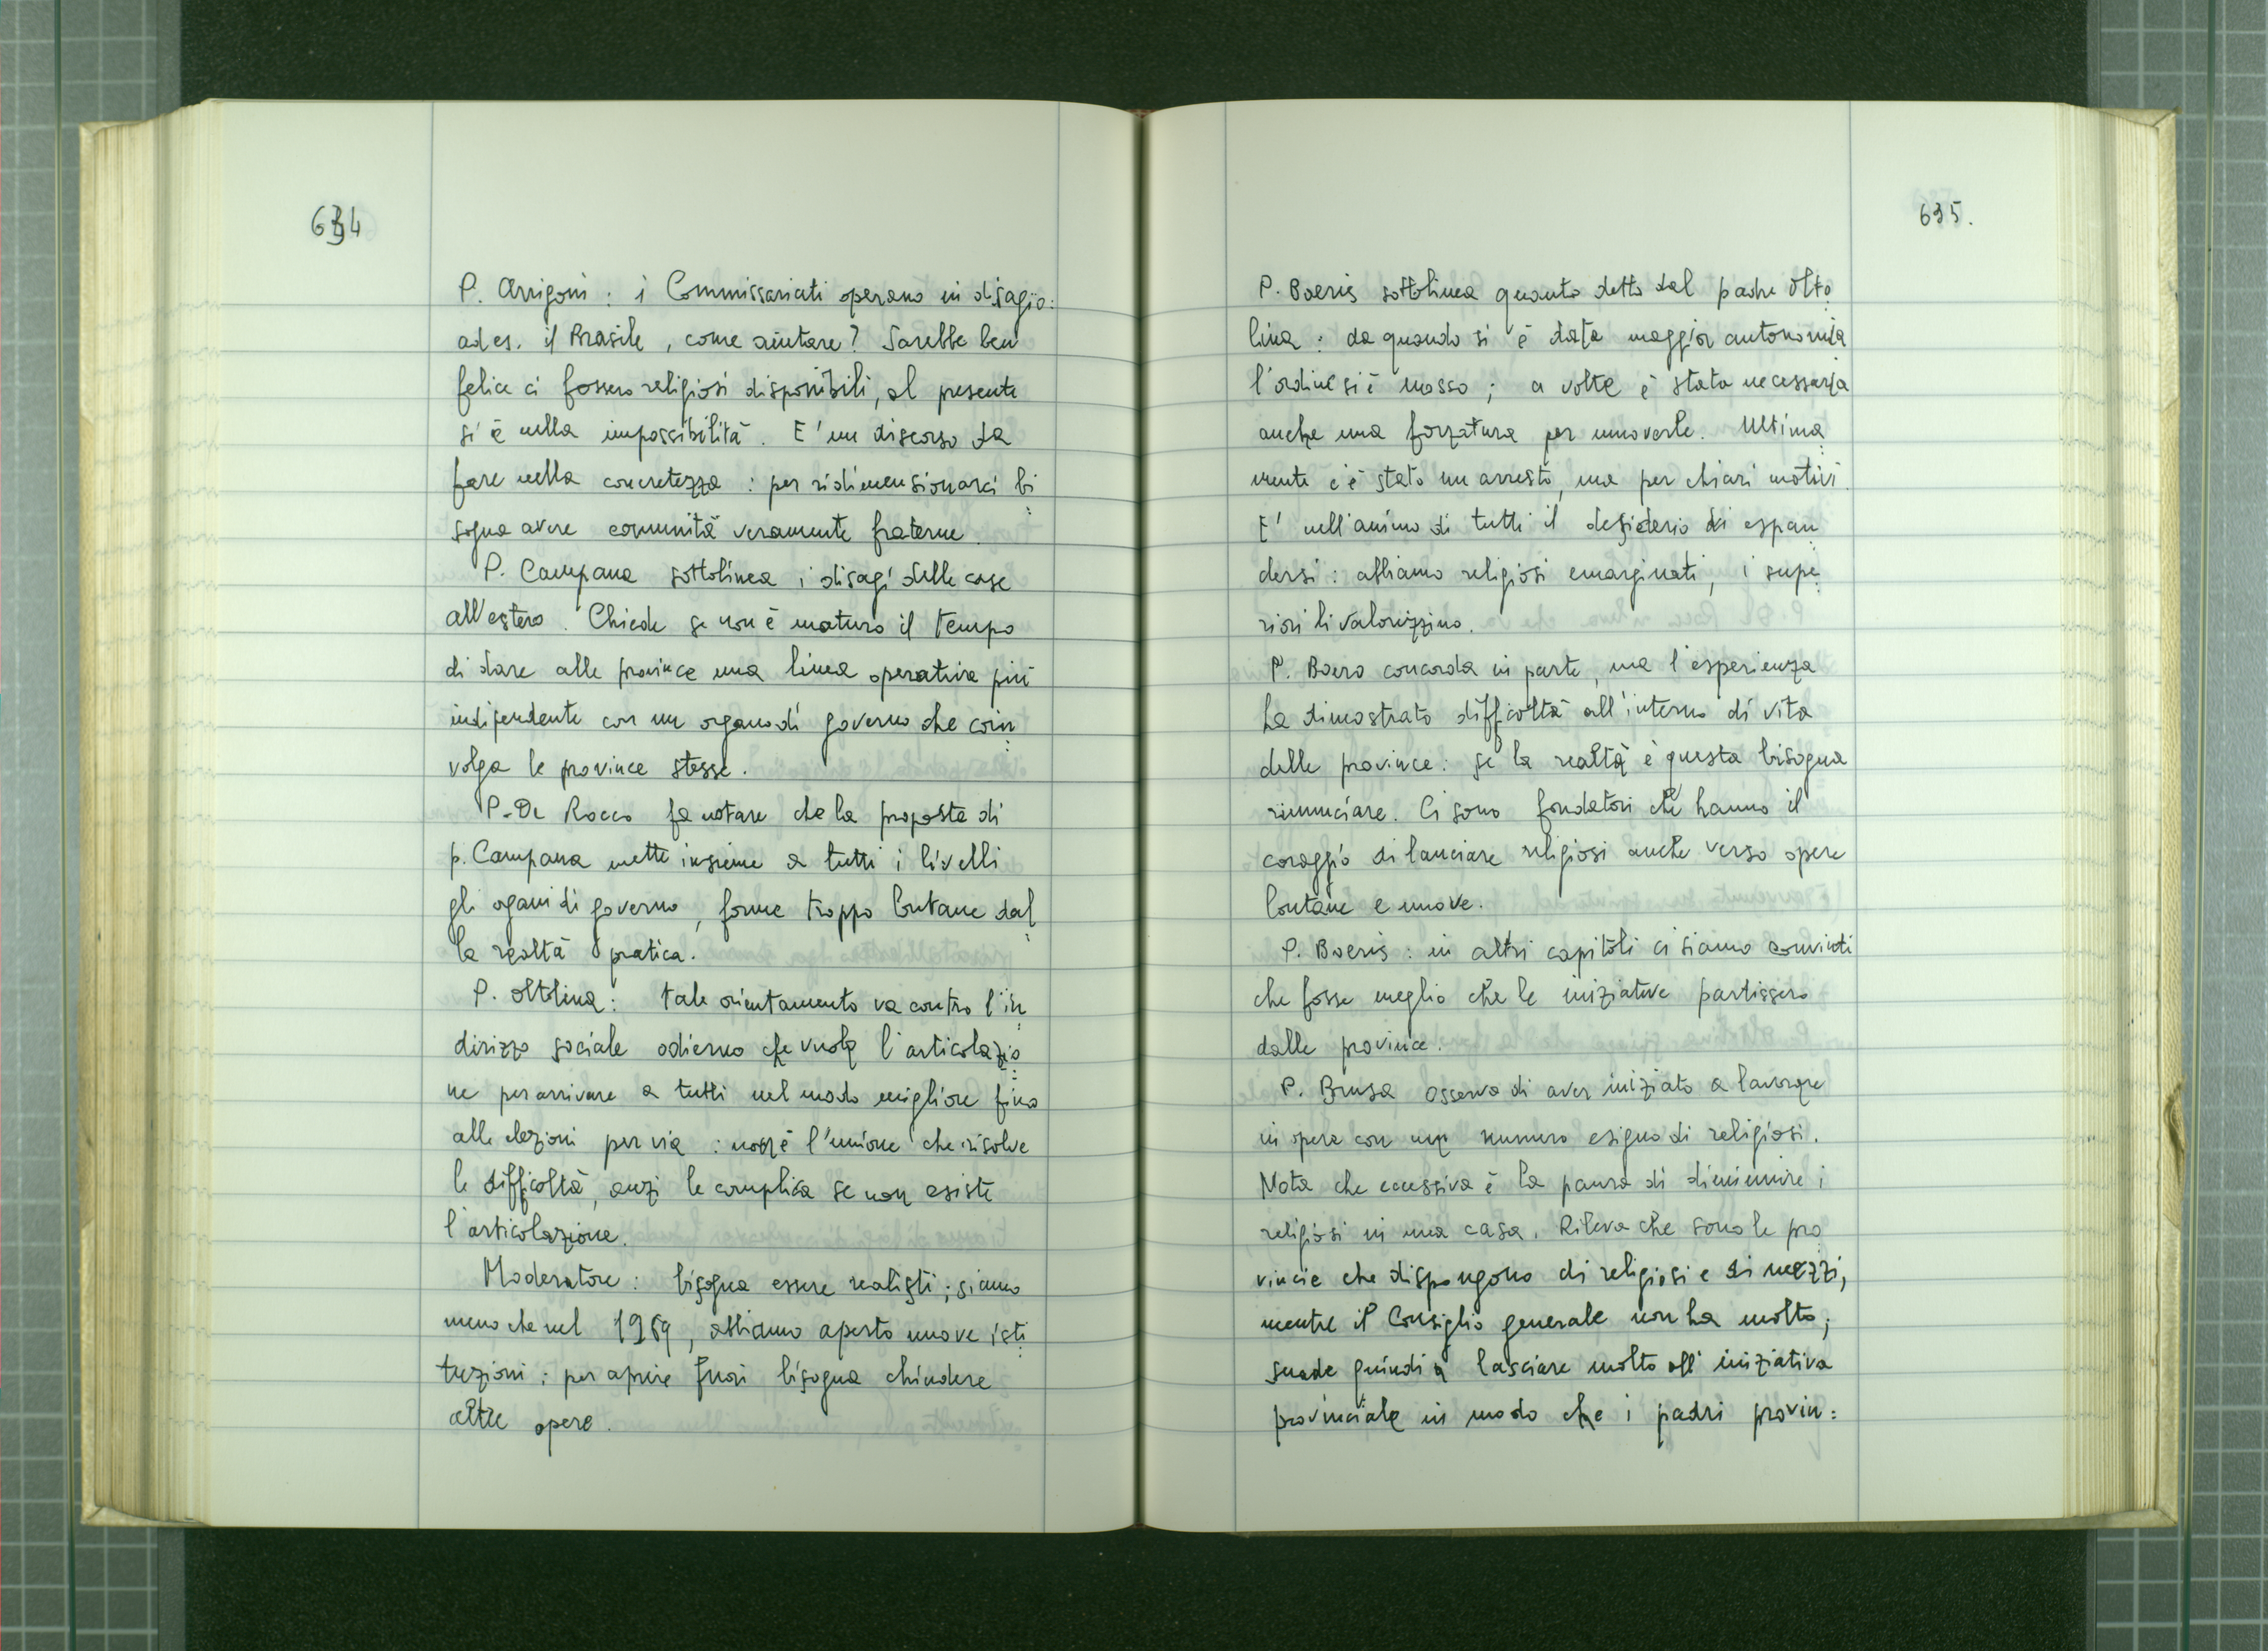 634
P. Arrigoni : i Commissariati operano in disagio:
ad es. il Brasile , come aiutare? Sarebbe ben
felice ci fossero religiosi disponibili, al presente
si è nella impossibilità . E' un discorso da
fare nella concretezza : per ridimensionarci bi
sogna avere comunità veramente fraterne .
P. Campana sottolinea i disagi delle case
all'estero . Chiede se non è maturo il tempo
di dare alle province una linea operativa più
indipendente con un organo di governo che coin
volga le province stesse .
P. De Rocco fa notare che la proposta di
p. Campana mette insieme a tutti i livelli
gli ogani di governo , forme troppo lontane dal
la realtà pratica .
P. Oltolina : tale orientamento va contro l'in
dirizzo sociale odierno che vuole l'articolazio
ne per arrivare a tutti nel modo migliore fino
alle elezioni per via : non è l'unione che risolve
le difficoltà , anzi le complica se non esiste
l'articolazione .
Moderatore : bisogna essere realisti ; siamo
meno che nel 1969 , abbiamo aperto nuove isti
tuzioni ; per aprire fuori bisogna chiudere
altre opere .
635.
P. Boeris sottolinea quanto detto dal padre Olto
lina : da quando si è data maggior autonomia
l'ordine si è mosso ; a volte è stata necessaria
anche una forzatura per muoverle . Ultima
mente c'è stato un arresto , ma per chiari motivi .
E' nell'animo di tutti il desiderio di espan
dersi : abbiamo religiosi emarginati , i supe
riori li valorizzino .
P. Boero concorda in parte , ma l'esperienza
ha dimostrato difficoltà all'interno di vita
delle province : se la realtà è questa bisogna
rinunciare . Ci sono fondatori che hanno il
coraggio di lanciare religiosi anche verso opere
lontane e nuove .
P. Boeris : in altri capitoli ci siamo convinti
che fosse meglio che le iniziative partissero
dalle province .
P. Brusa osserva di aver iniziato a lavorare
in opere con un numero esiguo di religiosi .
Nota che eccessiva è la paura di diminuire i
religiosi in una casa . Rileva che sono le pro
vincie che dispongono di religiosi e di mezzi ,
mentre il Consiglio generale non ha molto ;
suade quindi a lasciare molto all'iniziativa
provinciale in modo che i padri provin=